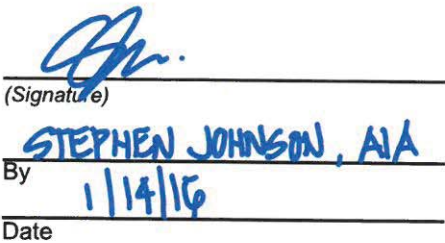 (Signature)
STEPHEN JOHNSON, AIA
By
1/14/16
Date